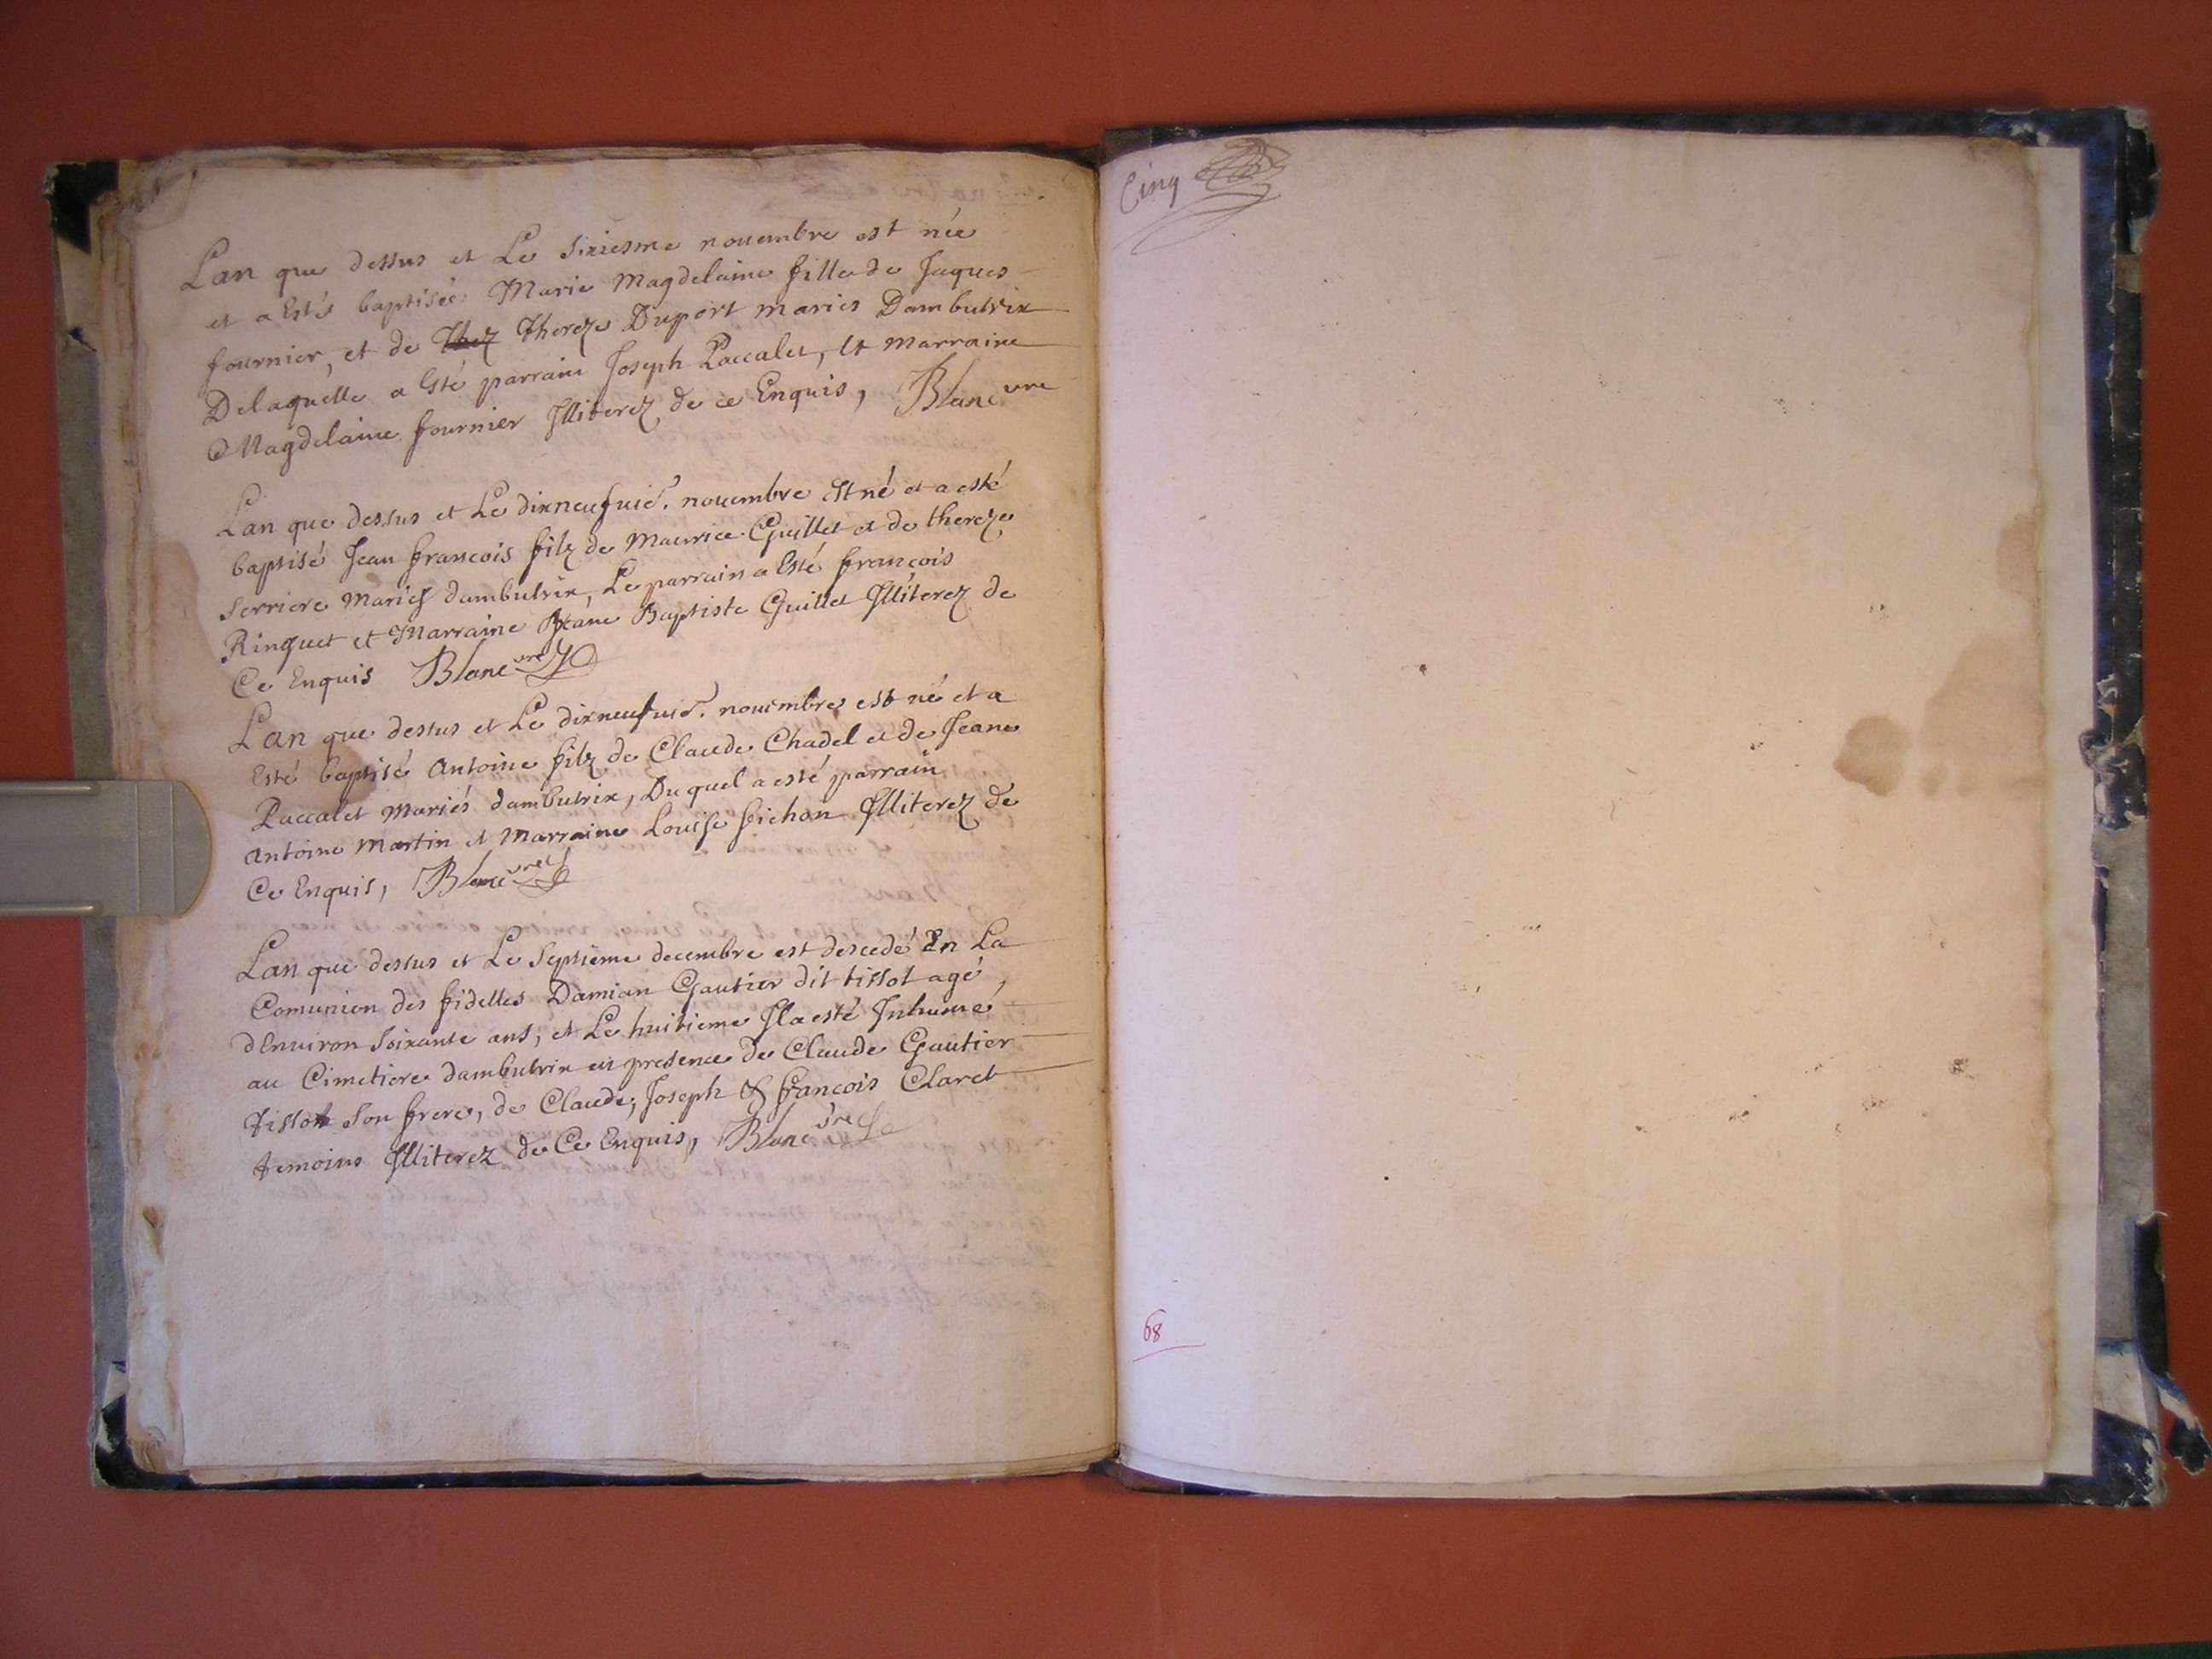 Lan que dessus et Le Sixiesme nouembre est née
et a Estés baptisée Marie Magdelaine fille de Jaques
fournier, et de Thez Thereze Duport mariés Dambutrix
Delaquelle a Esté parrain Joseph Paccalet, Et marraine
Magdelaine fournier Jlliterez de ce Enquis, Blanc vre
Lan que dessus et Le dixneufuie. nouembre Est né et a esté
baptisé Jean francois filz de Maurice Guillet et de thereze
Serriere Mariés dambutrix, Le parrain a Esté françois
Ringuet et Marraine Jeane Baptiste Guillet Jlliterez de
Ce Enquis Blanc vre
Lan que dessus et Le dixneufuie. nouembres est né et a
Esté baptisé Antoine filz de Claude Chadel et de Jeane
Paccalet Mariés dambutrix, Duquel a esté parrain
Antoine Martin et Marraine Louise Pichon Jlliterez de
Ce Enquis, Blanc vre
Lan que dessus et Le Septième decembre est descedé En La
Comunion des fidelles Damian Gautier dit tissot agé
dEnuiron Soixante ans, et Le huitieme Jl a esté Jnhumé
au Cimetiere dambutrix en presence de Claude Gautier
tissot Son frere, de Claude, Joseph & francois Claret
temoins Jlliterez de Ce Enquis, Blanc vre
Cinq
68